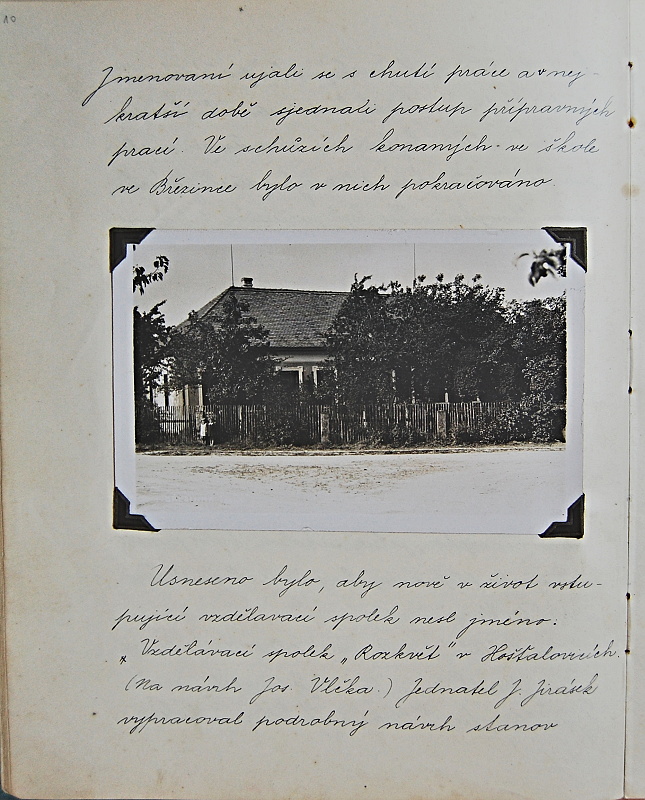 10
Jmenovaní ujali se s chutí práce a v nej-
kratší době sjednali postup přípravných
prací. Ve schůzích konaných ve škole
ve Březince bylo v nich pokračováno.
Usneseno bylo, aby nově v život vstu-
pující vzdělavací spolek nesl jméno:
„Vzdělávací spolek „Rozkvět" v Hošťalovicích.
(Na návrh Jos. Vlčka.) Jednatel J. Jirásek
vypracoval podrobný návrh stanov